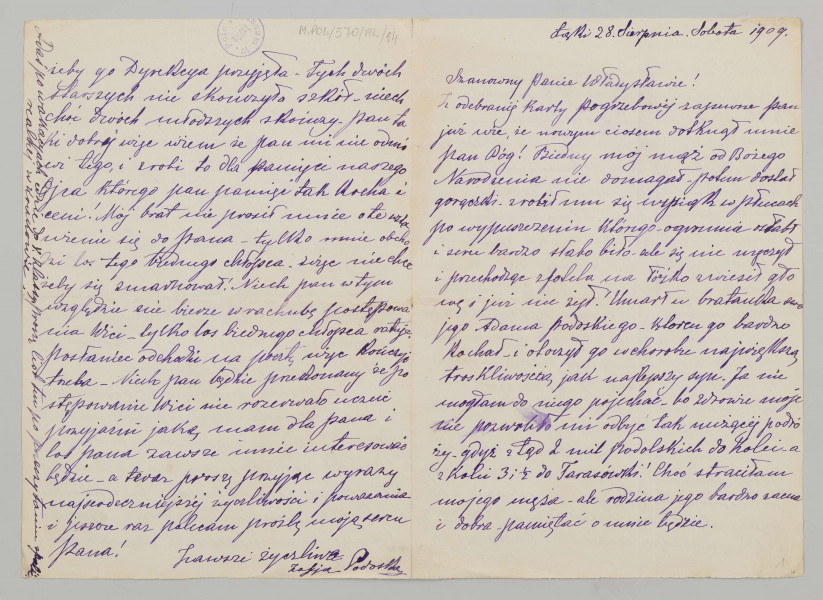 Łąki 28. Sierpnia. Sobota 1909.
Szanowny Panie Władysławie!
Z odebranej Karty pogrzebowej zapewne pan
już wie, że nowym ciosem dotknął mnie
pan Bóg! Biedny mój mąż od Bożego
Narodzenia nie domagał - potem dostał
gorączki - zrobił mu się wysięk w płucach
po wypuszczeniu którego - ogromnie osłabł
i serce bardzo słabo biło - ale się nie męczył
i przechodząc z fotela na łóżko zwiesił gło
wę i już nie żył! Umarł u bratanka swo
jego Adama Podoskiego - którego bardzo
kochał - i otoczył go w chorobie największą
troskliwością, jak najlepszy syn. Ja nie
mogłam do niego pojechać - bo zdrowie moje
nie pozwoliło mi odbyć tak męczącej podró
ży - gdyż z tąd 2 mil podolskich do kolei - a
z kolei 3 i ½ do Tarasówki! Choć straciłam
mojego męża - ale rodzina jego bardzo zacna
i dobra - pamiętać o mnie będzie.
M.POL/570/ML/14
żeby go Dyrekcya przyjęła - Tych dwóch
starszych nie skończyło szkół - niech
choć dwóch młodszych skończy - pan ta
ki dobry więc wiem że pan mi nie odmó
wi tego, i zrobi to dla pamięci naszego
Ojca którego pan pamięć tak kocha i
ceni. Mój brat nie prosił mnie o te
wienie się do pana - tylko mnie obcho
dzi los tego biednego chłopca - więc nie chcę
żeby się zmarnował! Niech pan w tym
względzie nie bierze w rachubę postępowa
nia Wici - tylko los biednego chłopca ratuje.
Posłaniec odchodzi na pocztę więc kończyć
trzeba - Niech pan będzie przekonany że po
stępowanie Wici nie rozerwało uczuć
przyjaźni jaką mam dla pana i
los pana zawsze mnie interesować
będzie - a teraz proszę przyjąć wyrazy
najserdeczniejszej życzliwości i poważania
i jeszcze raz polecam prośbę moją sercu
pana!
Zawsze życzliwa
Zofja Podoska